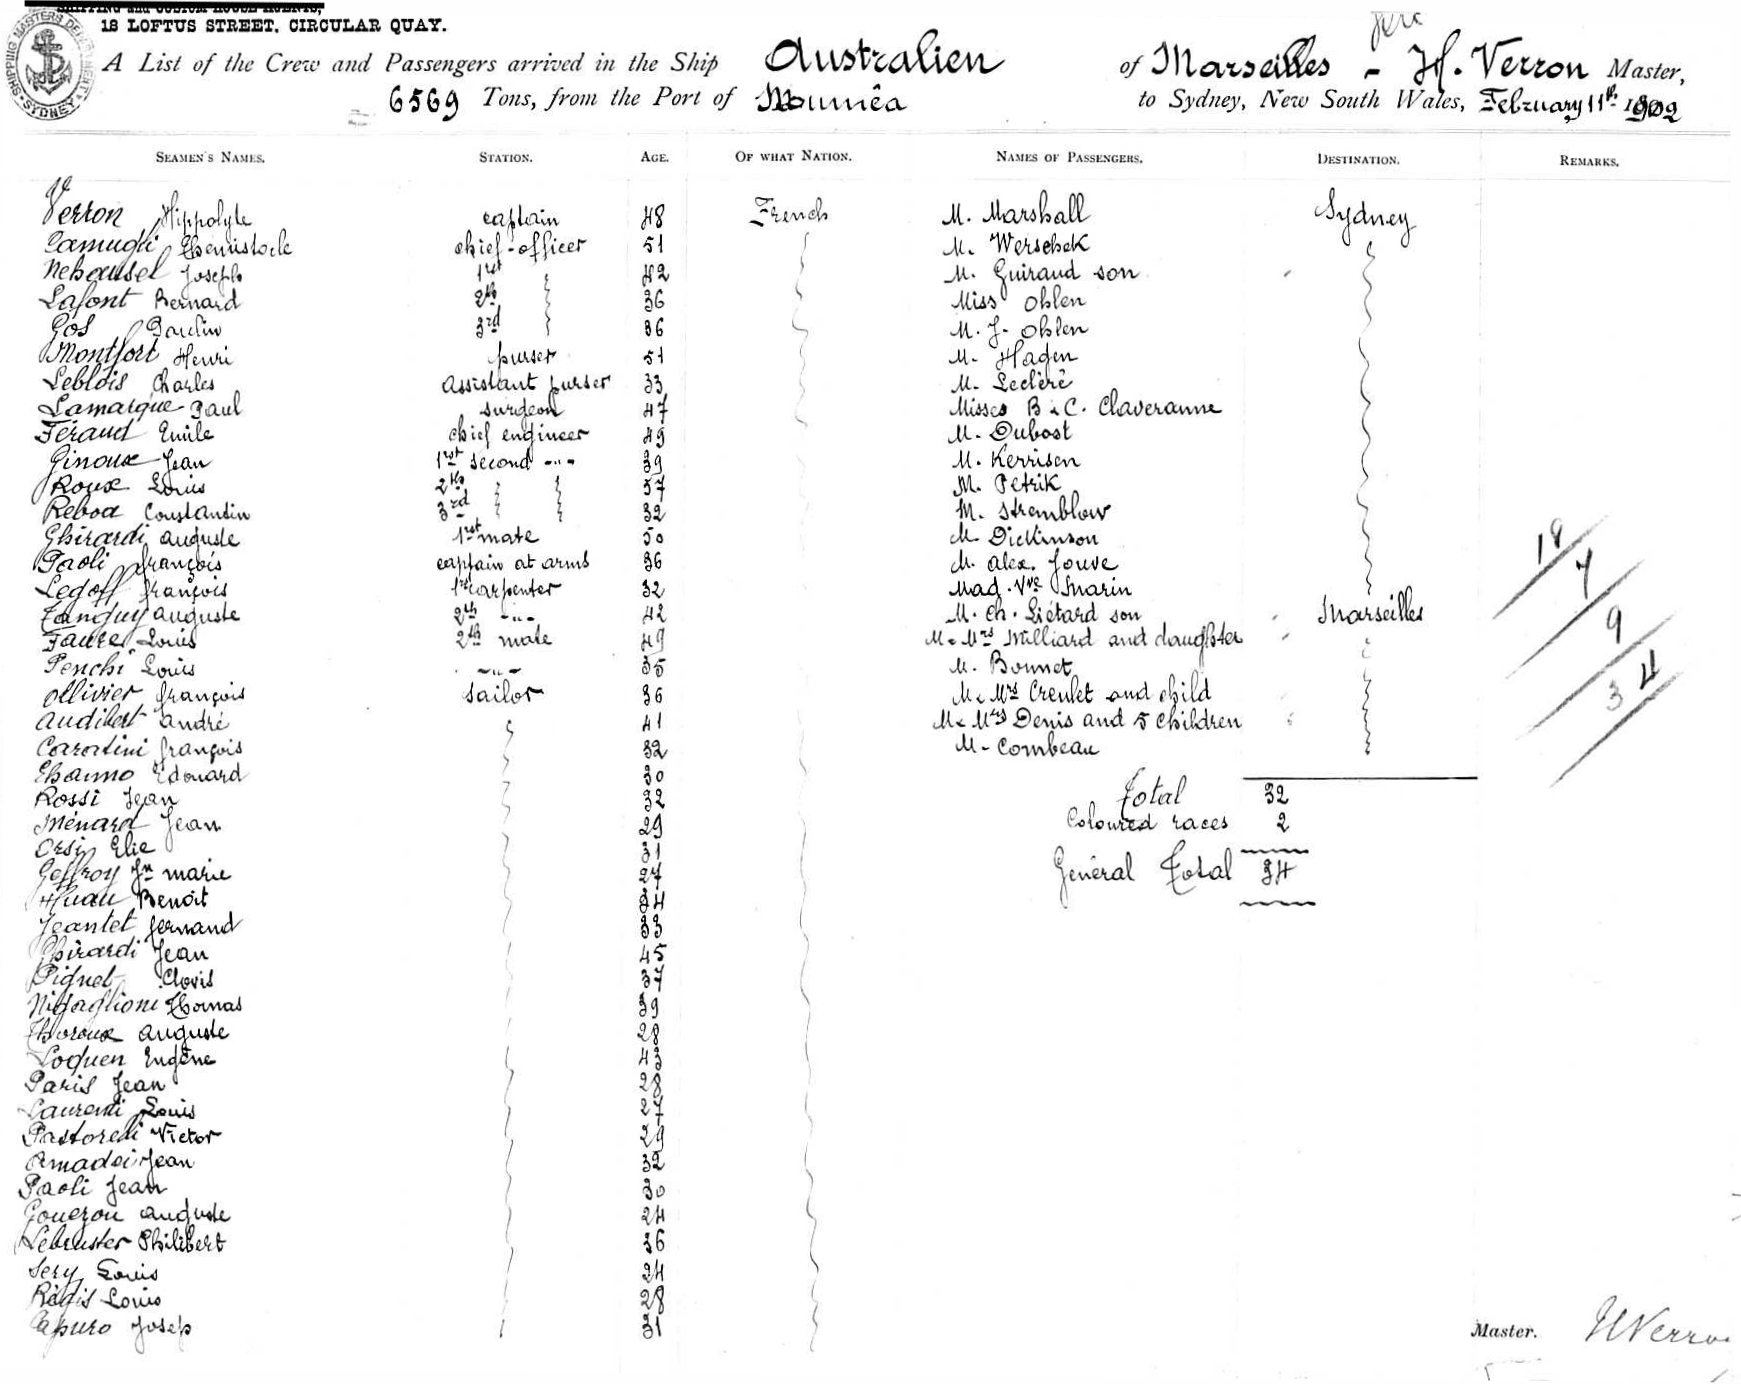 18 LOFTUS STREET, CIRCULAR QUAY.
SHIPPING MASTERS DEPARTMENT SYDNEY
A List of the Crew and Passengers arrived in the Ship Australien of Marseilles - H. Verron Master,
6569 Tons, from the Port of Nouméa to Sydney, New South Wales, February 11th 1902
SEAMEN'S NAMES. STATION. AGE. OF WHAT NATION. NAMES OF PASSENGERS. DESTINATION. REMARKS.
Verron Hippolyte captain 48 French M. Marshall Sydney
Camugli Themistocle chief-officer 51 M. Werschek
Nehousel Joseph 1rst 42 M. Guiraud son
Lafont Bernard 2th 36 Miss Ohlen
Gos Paulin 3rd 36 M. J. Ohlen
Montfort Henri purser 51 M. Hagen
Leblois Charles assistant purser 33 M. Leclère
Lamarque Paul surgeon 47 Misses B & C. Claveranne
Féraud Emile chief engineer 49 M. Dubost
Ginoux Jean 1rst second -"- 39 M. Kerrisen
Roux Louis 2th 57 M. Petrik
Reboa Constantin 3rd 32 M. Stremblow
Ghirardi auguste 1rst mate 50 M. Dickinson
Paoli françois captain at arms 36 M. alex. Jouve
Legoff françois 1rst carpenter 32 Mad. Vve Marin
Tanguy auguste 2th -"- 42 M. Ch. Liétard son Marseilles
Faure Louis 2th mate 49 M. Mrs Milliard and daughter
Penchi Louis -"- 35 M. Bonnet
Ollivier françois sailor 36 M. Mrs Creulet and child
audibert andré 41 M. Mrs Denis and 5 children
Caratini françois 32 M. Combeau
Ehanno Edouard 30
Rossi Jean 32 Total 32
Ménard Jean 29 Coloured races 2
Orsi Elie 31
Geffroy Jn marie 27 Général Total 34
Huau Benoit 34
Jeantet fernand 33
Ghirardi Jean 45
Pignet Clovis 37
Nigaglioni Thomas 39
Thoroux auguste 28
Loquen Eugène 43
Paris Jean 28
Laurenti Louis 27
Pastoreli Victor 29
Amadei Jean 32
Paoli Jean 30
Gouezou auguste 24
Lebruster Philibert 36
Sery Louis 24
Régis Louis 28
Capuro Josep 31
18
7
9
34
Master. H Verron